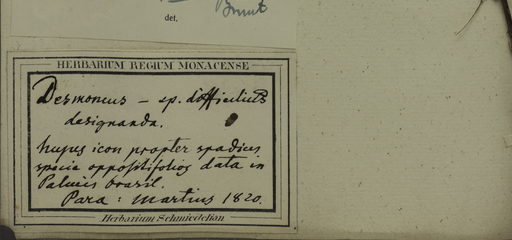 Burret
det.
HERBARIUM REGIUM MONACENSE
Desmoncus – sp. difficilius
designanda.
hujus icon propter spadices
specie oppositifolios data in
Palmis brasil.
Para: Martius 1820.
Herbarium Schmiedelian